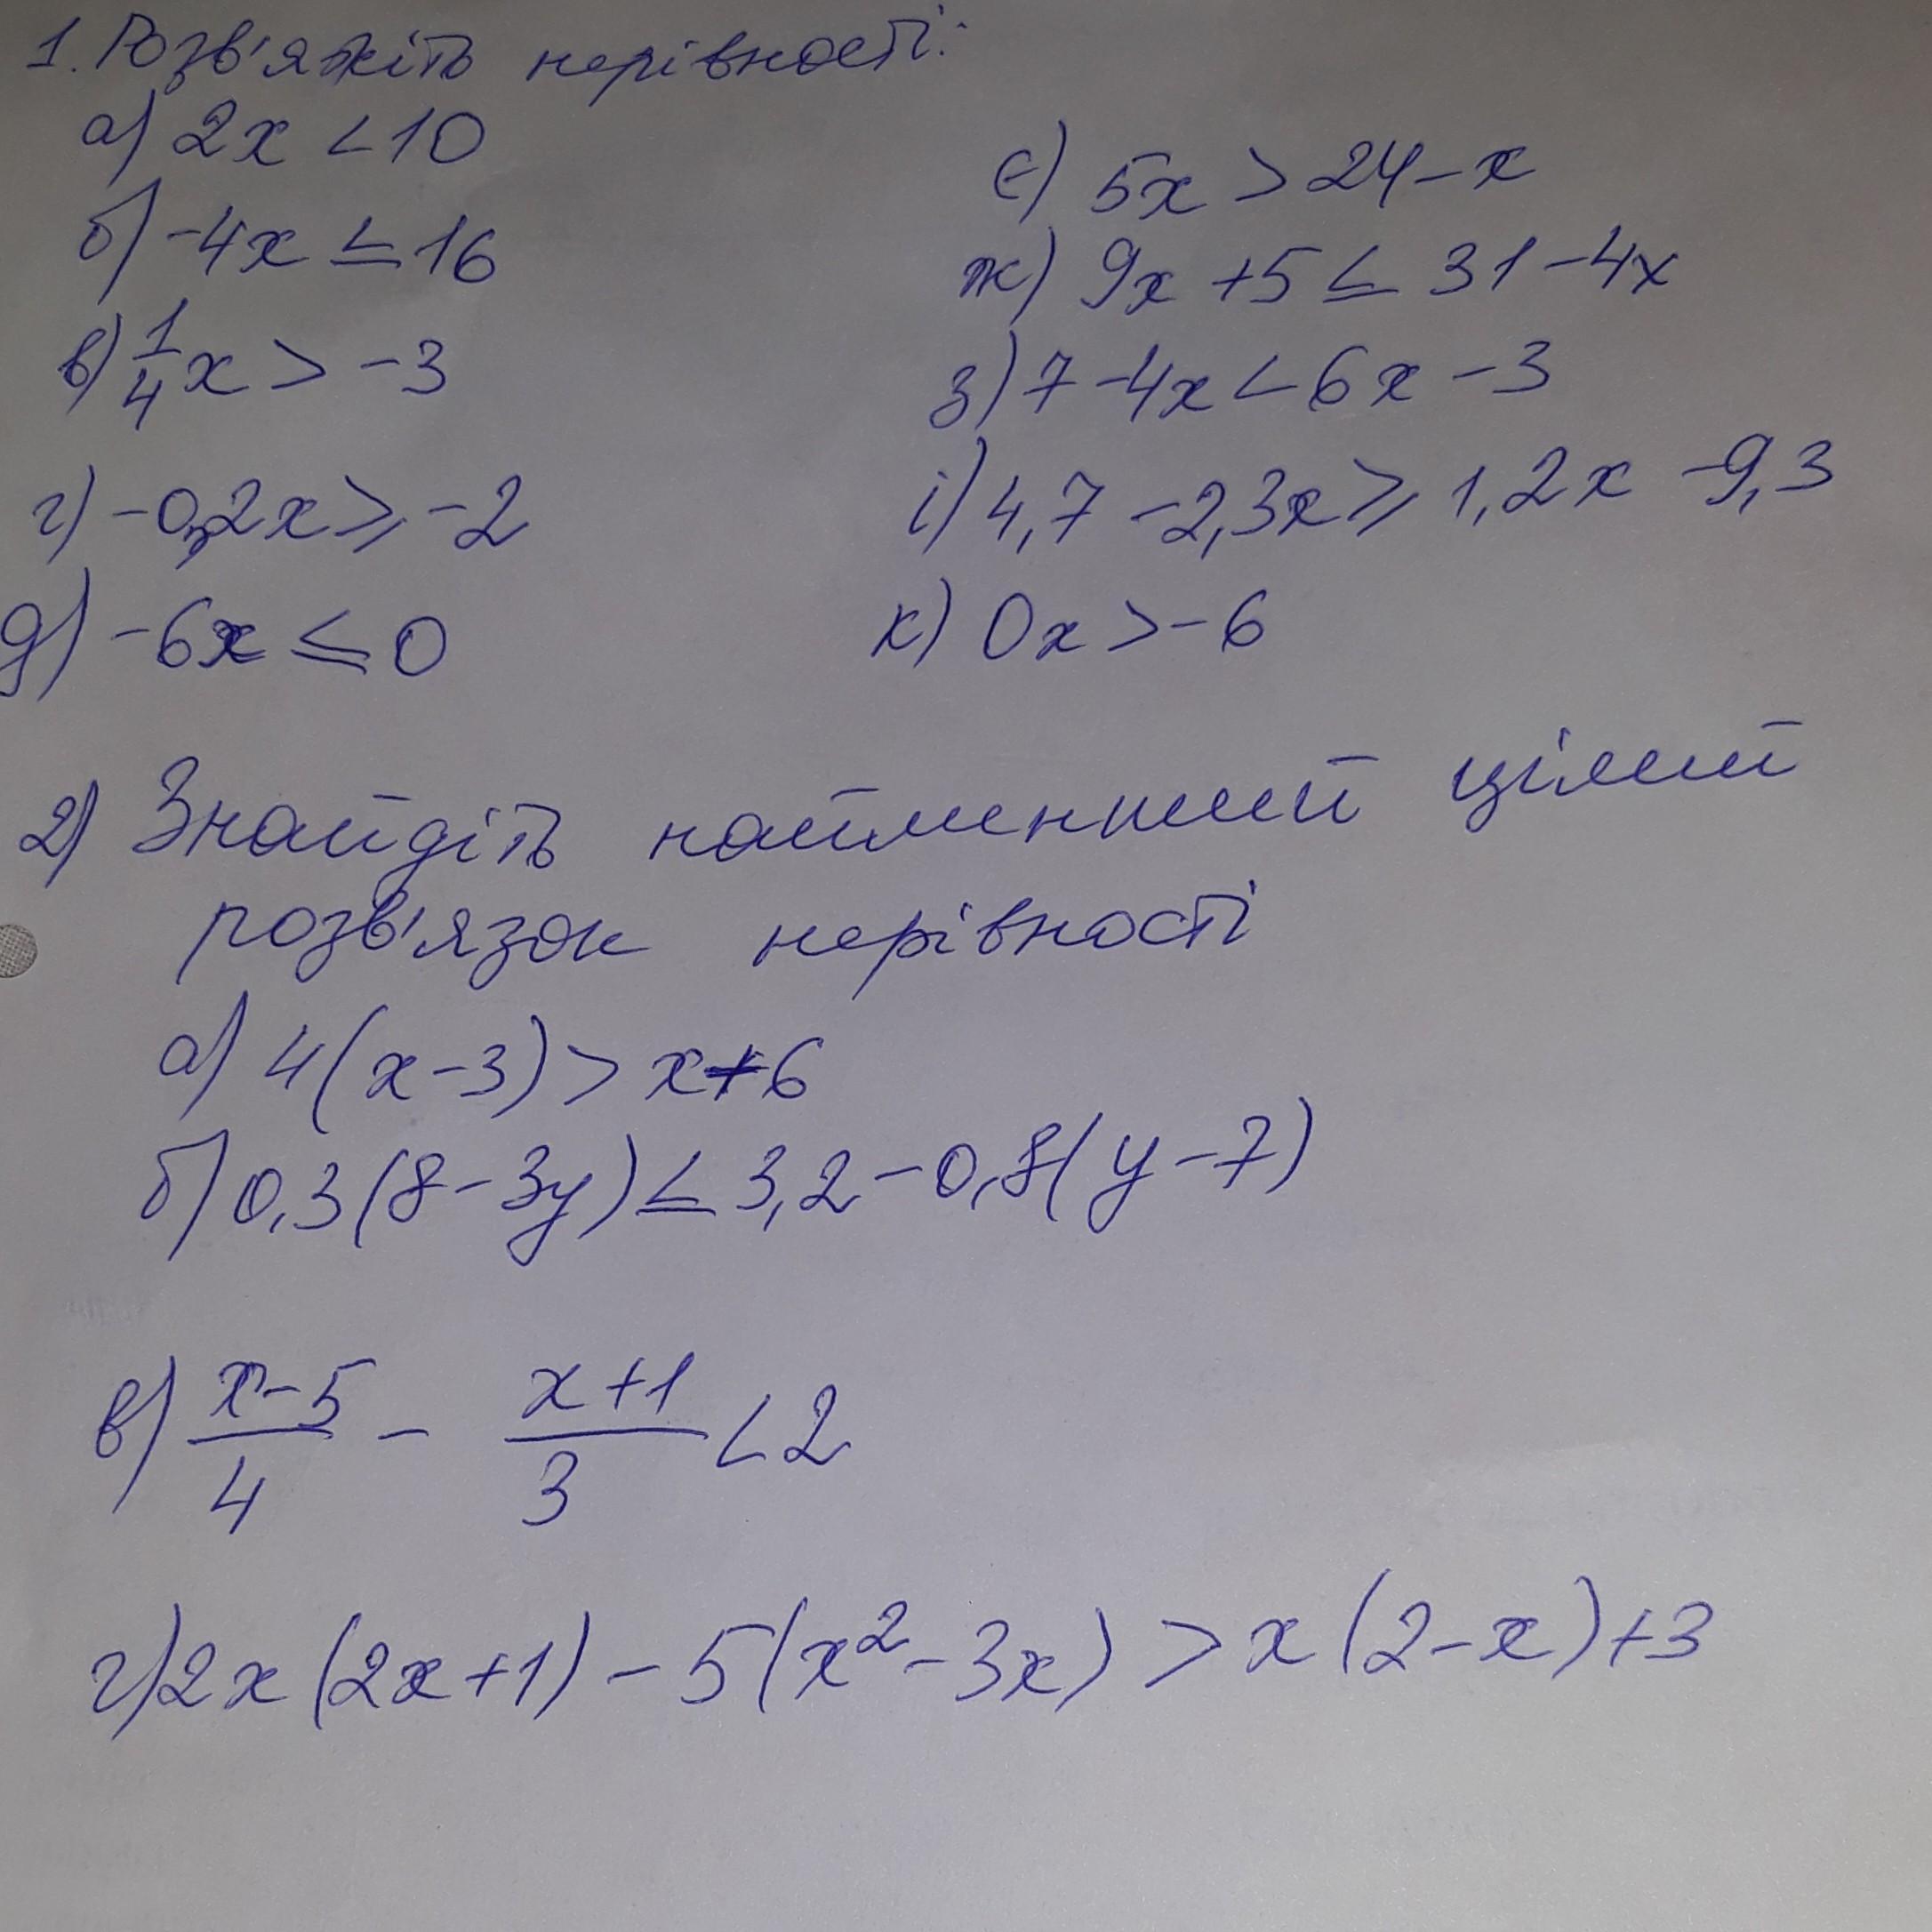 1. Розв'яжіть нерівності:
а) 2x < 10
б) -4x ≤ 16
в) 1/4 x > -3
г) -0,2x ≥ -2
д) -6x ≤ 0
є) 5x > 24 - x
ж) 9x + 5 ≤ 31 - 4x
з) 7 - 4x < 6x - 3
і) 4,7 - 2,3x ≥ 1,2x - 9,3
к) 0x > -6
2) Знайдіть найменший цілий
розв'язок нерівності
а) 4(x - 3) > x + 6
б) 0,3(8 - 3y) ≤ 3,2 - 0,8(y - 7)
в) (x - 5)/4 - (x + 1)/3 < 2
г) 2x(2x + 1) - 5(x² - 3x) > x(2 - x) + 3